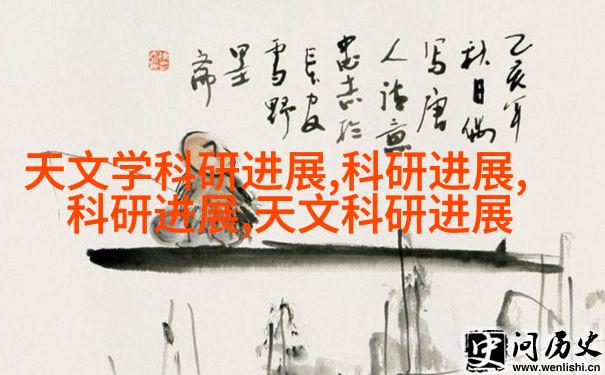 乙亥年
秋日偶
写唐
人诗意
忠志于
长安
雪野
墨
斋
天文学科研进展,科研进展,
科研进展,天文科研进展
问历史
www.wenlishi.cn